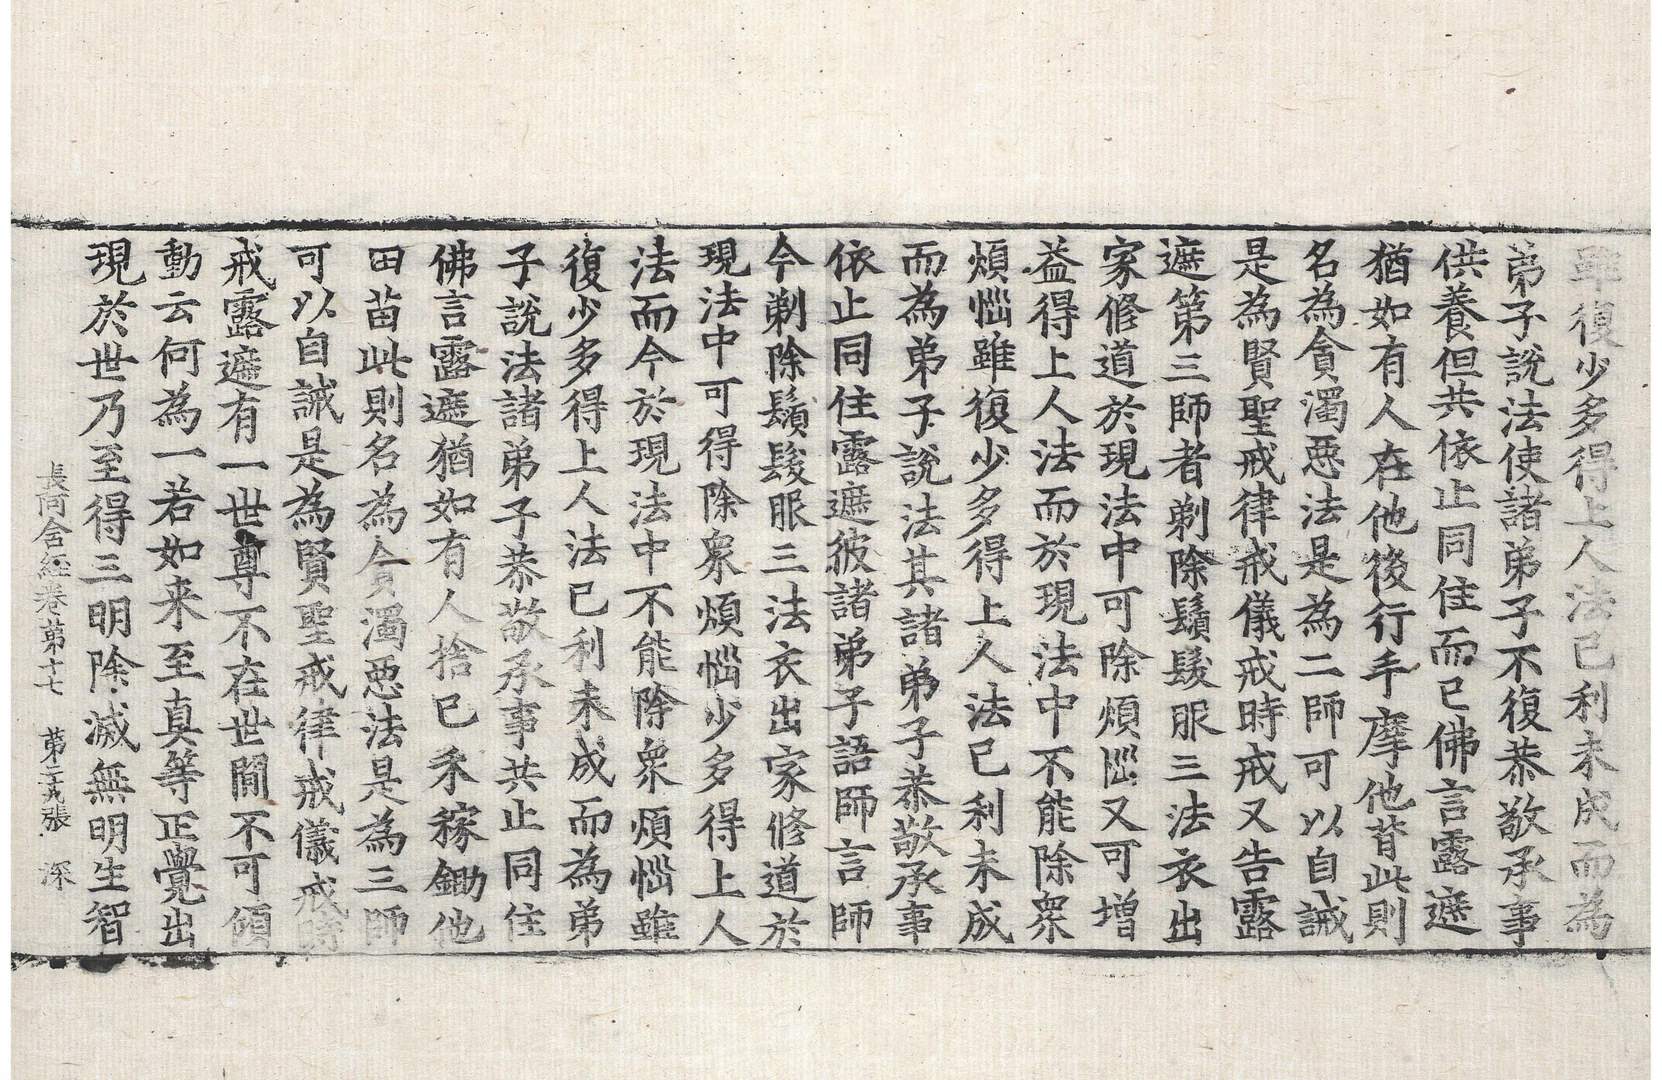 雖復少多得上人法己利未成而為
弟子說法使諸弟子不復恭敬承事
供養但共依止同住而已佛言露遮
猶如有人在他後行手摩他背此則
名為貪濁惡法是為二師可以自誡
是為賢聖戒律戒儀戒時戒又告露
遮第三師者剃除鬚髮服三法衣出
家修道於現法中可除煩惱又可增
益得上人法而於現法中不能除衆
煩惱雖復少多得上人法己利未成
而為弟子說法其諸弟子恭敬承事
依止同住露遮彼諸弟子語師言師
今剃除鬚髮服三法衣出家修道於
現法中可得除衆煩惱少多得上人
法而今於現法中不能除衆煩惱雖
復少多得上人法己利未成而為弟
子說法諸弟子恭敬承事共止同住
佛言露遮猶如有人捨己禾稼鋤他
田苗此則名為貪濁惡法是為三師
可以自誡是為賢聖戒律戒儀戒時
戒露遮有一世尊不在世間不可傾
動云何為一若如来至真等正覺出
現於世乃至得三明除滅無明生智
長阿含經卷第十七 第二張 深